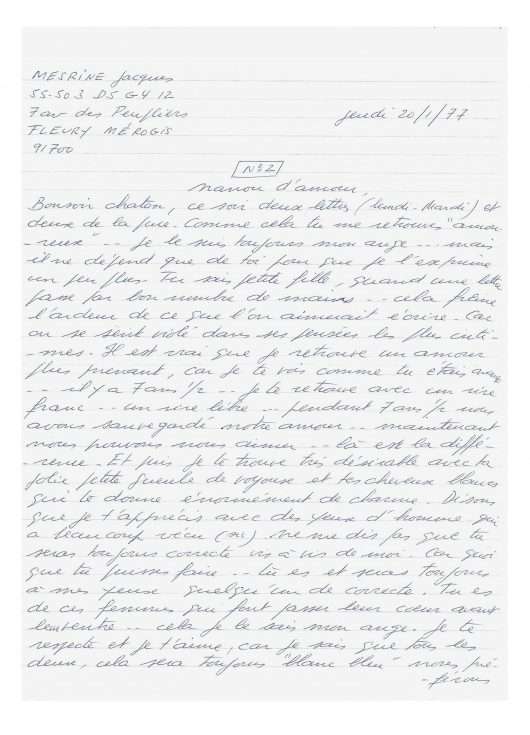 MESRINE Jacques
55-503 D5 G4 12
7 av des Peupliers
FLEURY MÉROGIS
91700
jeudi 20/1/77
N°2
nanou d'amour,
Bonsoir chaton, ce soir deux lettres (lundi-Mardi) et
deux de la puce. Comme cela tu me retrouves "amou-
-reux" -- je le suis toujours mon ange --- mais
il ne dépend que de toi pour que je l'exprime
un peu plus. Tu sais petite fille, quand une lettre
passe par bon nombre de mains -- cela freine
l'ardeur de ce que l'on aimerait écrire. Car
on se sent violé dans ses pensées les plus inti-
-mes. Il est vrai que je retrouve un amour
plus prenant, car je te vois comme tu étais avant
-- il y a 7 ans 1/2 -- je te retrouve avec un rire
franc -- un rire libre -- pendant 7 ans 1/2 nous
avons sauvegardé notre amour -- maintenant
nous pouvons nous aimer -- là est la diffé-
-rence. Et puis je te trouve très désirable avec ta
jolie petite gueule de voyouse et tes cheveux blancs
qui te donne énormément de charme. Disons
que je t'apprécis avec des yeux d'homme qui
a beaucoup vécu (sic). ne me dis pas que tu
seras toujours correcte vis à vis de moi. Car quoi
que tu puisses faire -- tu es et seras toujours
à mes yeux quelqu'un de correcte. Tu es
de ces femmes qui font passer leur cœur avant
leur ventre -- cela je le sais mon ange. Je te
respecte et je t'aime, car je sais que tous les
deux, cela sera toujours "blanc bleu" nous pré-
-férons